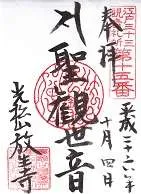 江戸三十三
観音札所
第十五番
奉拝
平成
十月四日
聖観世音
光松山放生寺